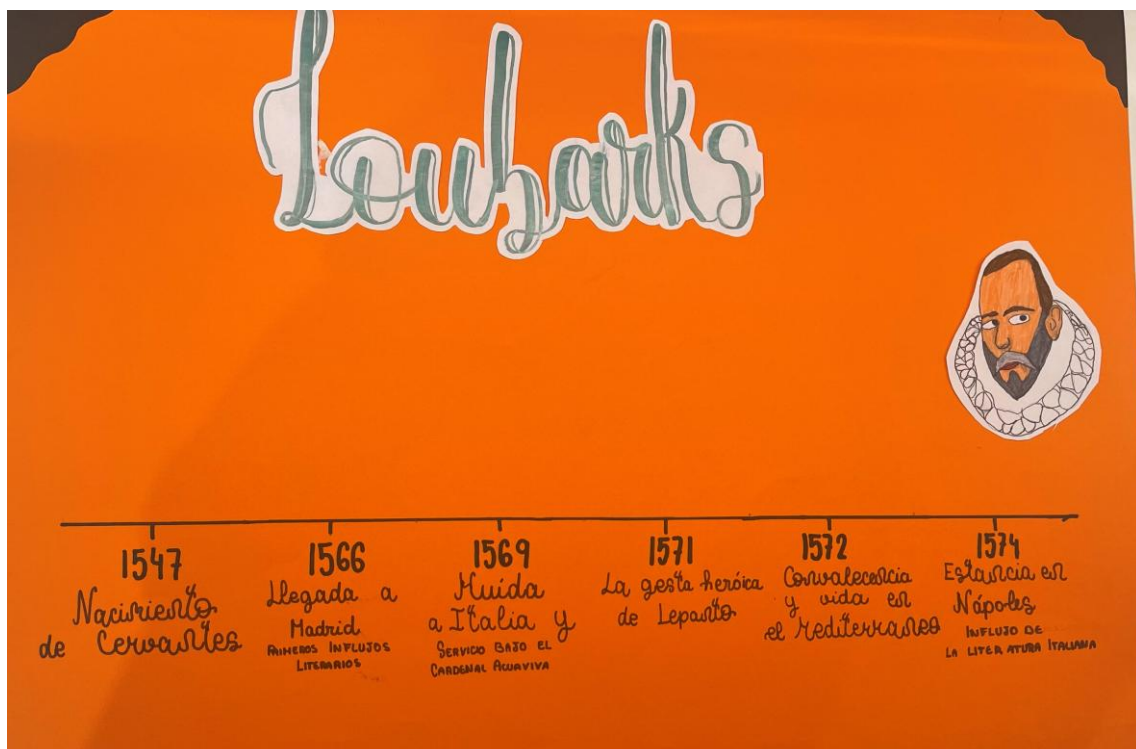 Louharks
1547
Nacimiento
de Cervantes
1566
Llegada a
Madrid
PRIMEROS INFLUJOS
LITERARIOS
1569
Huída
a Italia y
SERVICIO BAJO EL
CARDENAL
1571
La gesta heróica
de Lepanto
1572
Convalecencia
y vida en
el Mediterraneo
1574
Estancia en
Nápoles
INFLUJO DE
LA LITERATURA ITALIANA